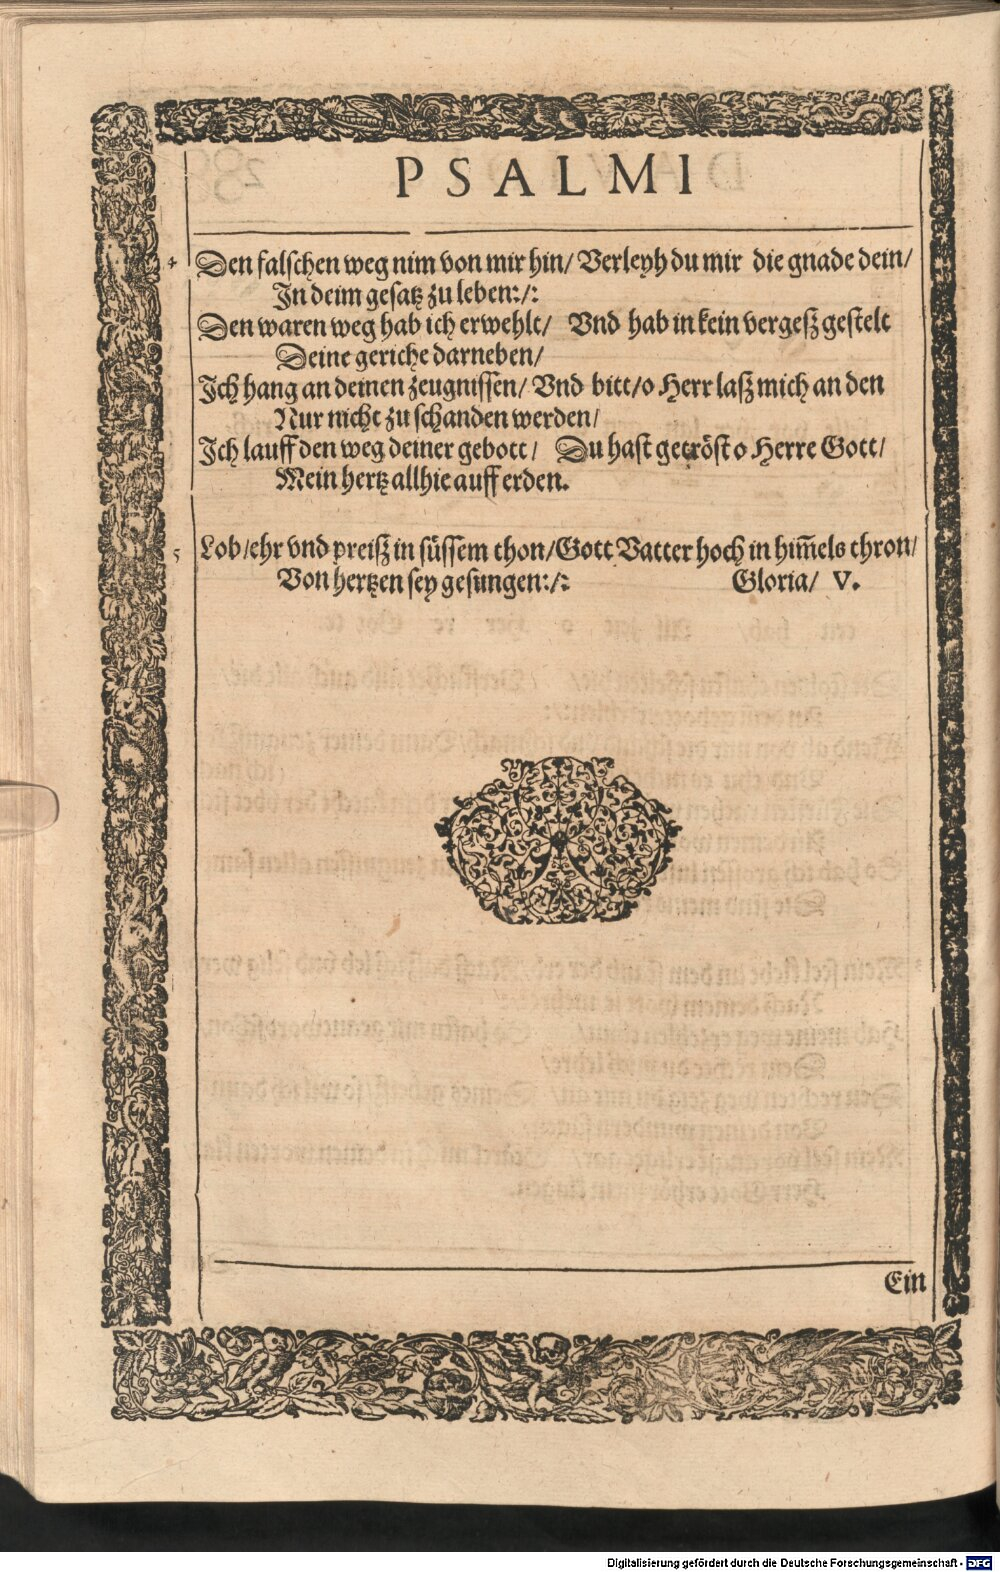 PSALMI
4 Den falschen weg nim von mir hin/ Verleyh du mir die gnade dein/
In deim gesatz zu leben:/:
Den waren weg hab ich erwehlt/ Vnd hab in kein vergesz gestelt
Deine gerichte darneben/
Ich hang an deinen zeugnissen/ Vnd bitt/ o Herr lasz mich an den
Nur nicht zu schanden werden/
Ich lauff den weg deiner gebott/ Du hast getröst o Herre Gott/
Mein hertz allhie auff erden.
5 Lob/ ehr vnd preisz in süssem thon/ Gott Vatter hoch in him̄els thron/
Von hertzen sey gesungen:/: Gloria/ V.
Ein
Digitalisierung gefördert durch die Deutsche Forschungsgemeinschaft - DFG